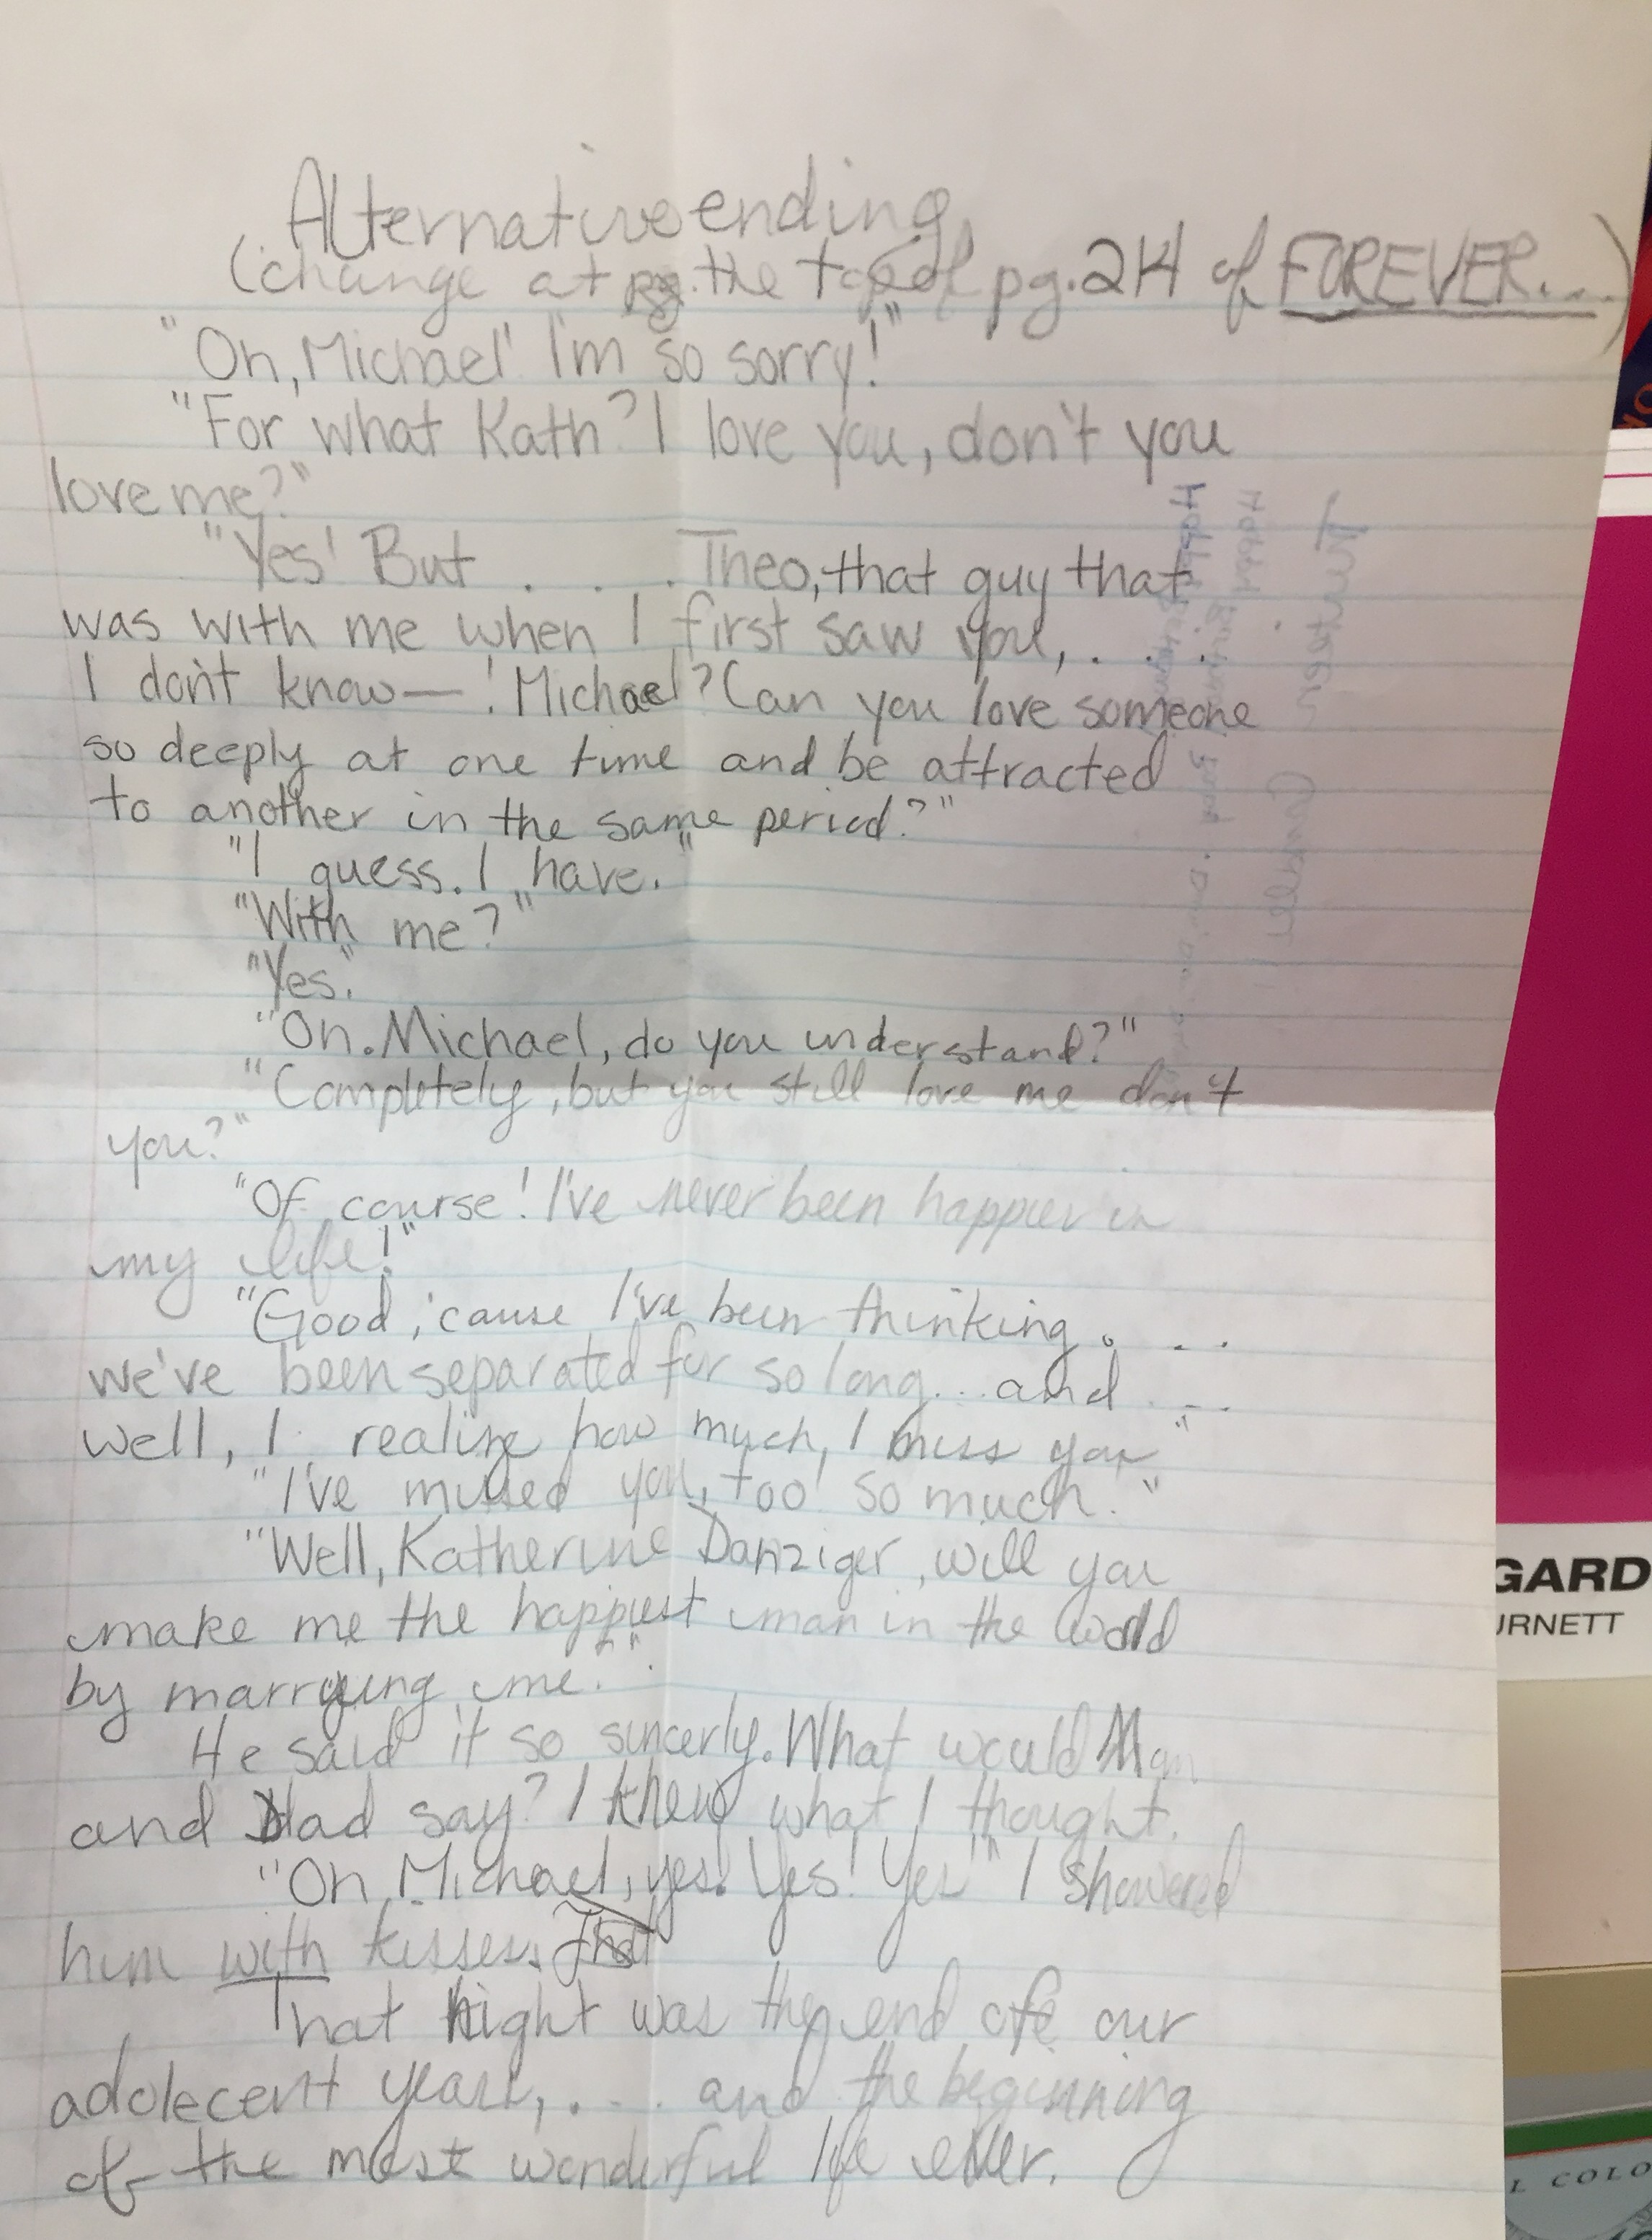 Alternative ending
(change at the top of pg. 214 of FOREVER...)
"Oh, Michael! I'm so sorry!"
"For what Kath? I love you, don't you
love me?"
"Yes! But . . . Theo, that guy that
was with me when I first saw you, . . .
I don't know—! Michael? Can you love someone
so deeply at one time and be attracted
to another in the same period?"
"I guess. I have."
"With me?"
"Yes."
"Oh. Michael, do you understand?"
"Completely, but you still love me don't
you?"
"Of course! I've never been happier in
my life!"
"Good, 'cause I've been thinking . . .
we've been separated for so long... and ...
well, I realize how much, I miss you"
"I've missed you, too! So much."
"Well, Katherine Danziger, will you
make me the happiest man in the world
by marrying me."
He said it so sincerly. What would Mom
and Dad say? I knew what I thought.
"Oh, Michael, yes! Yes! Yes" I showered
him with kisses. That
That night was the end of our
adolecent years, . . . and the beginning
of the most wonderful life ever.
GARD
URNETT
L COLO